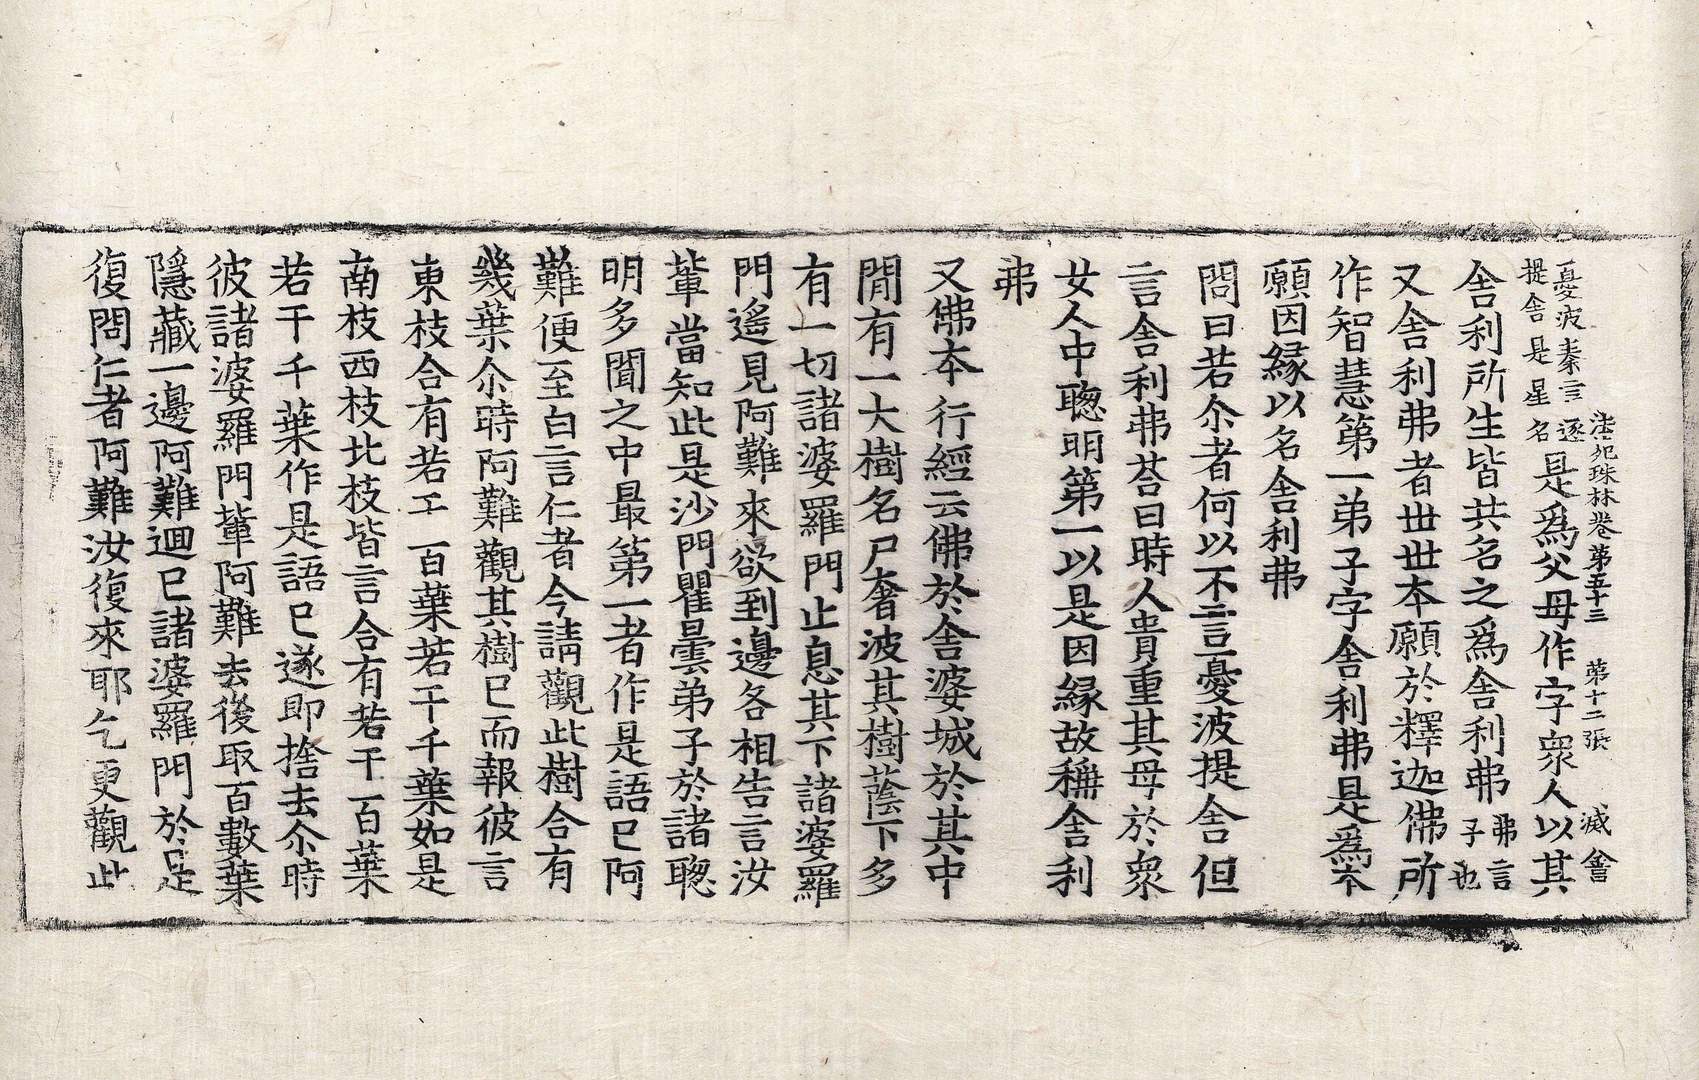 法苑珠林卷第五十三　第十二張　滅會
憂波泰言
提舍是星
逐
名
是爲父母作字衆人以其
舍利所生皆共名之爲舍利弗
弗言
子也
又舍利弗者世世本願於釋迦佛所
作智慧第一弟子字舍利弗是爲本
願因緣以名舍利弗
問曰若尒者何以不言憂波提舍但
言舍利弗荅曰時人貴重其母於衆
女人中聰明第一以是因緣故稱舍利
弗
又佛本行經云佛於舍婆城於其中
間有一大樹名尸奢波其樹蔭下多
有一切諸婆羅門止息其下諸婆羅
門遙見阿難來欲到邊各相告言汝
軰當知此是沙門瞿曇弟子於諸聰
明多聞之中最第一者作是語已阿
難便至白言仁者今請觀此樹合有
幾葉尒時阿難觀其樹已而報彼言
東枝合有若干百葉若干千葉如是
南枝西枝北枝皆言合有若干百葉
若干千葉作是語已遂即捨去尒時
彼諸婆羅門軰阿難去後取百數葉
隱藏一邊阿難迴已諸婆羅門於是
復問仁者阿難汝復來耶乞更觀此